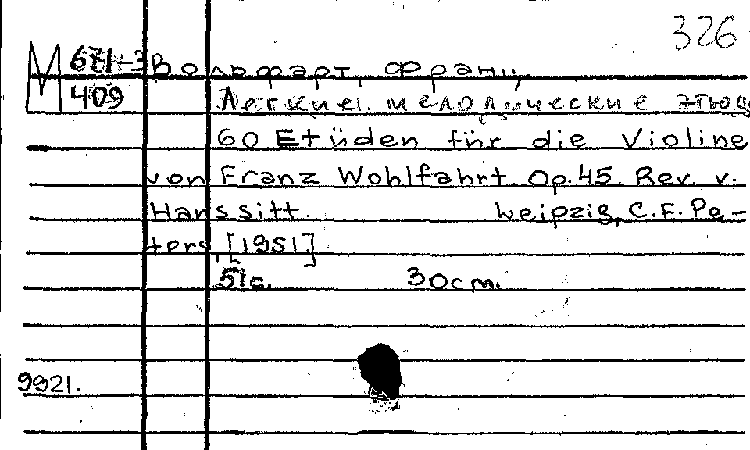 326
М 671-3 Вольфарт, Франц,
409 Легкие мелодические этюды
60 Etüden für die Violine
von Franz Wohlfahrt Op.45. Rev. v.
Hans Sitt. Leipzig, C.F.Pe-
ters, [1951]
51c. 30cm.
9921.